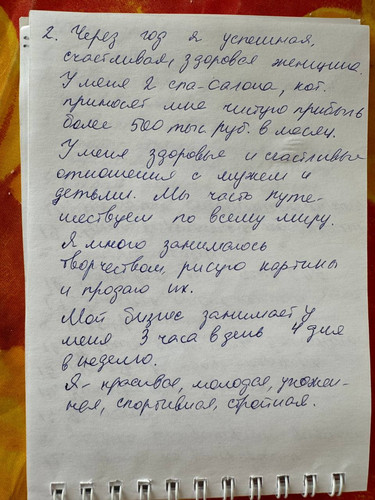 2. Через год я успешная,
счастливая, здоровая женщина.
У меня 2 спа-салона, кот.
приносят мне чистую прибыль
более 500 тыс. руб. в месяц.
У меня здоровые и счастливые
отношения с мужем и
детьми. Мы часто путе-
шествуем по всему миру.
Я много занимаюсь
творчеством, рисую картины
и продаю их.
Мой бизнес занимает у
меня 3 часа в день 4 дня
в неделю.
Я - красивая, молодая, ухожен-
ная, спортивная, стройная.